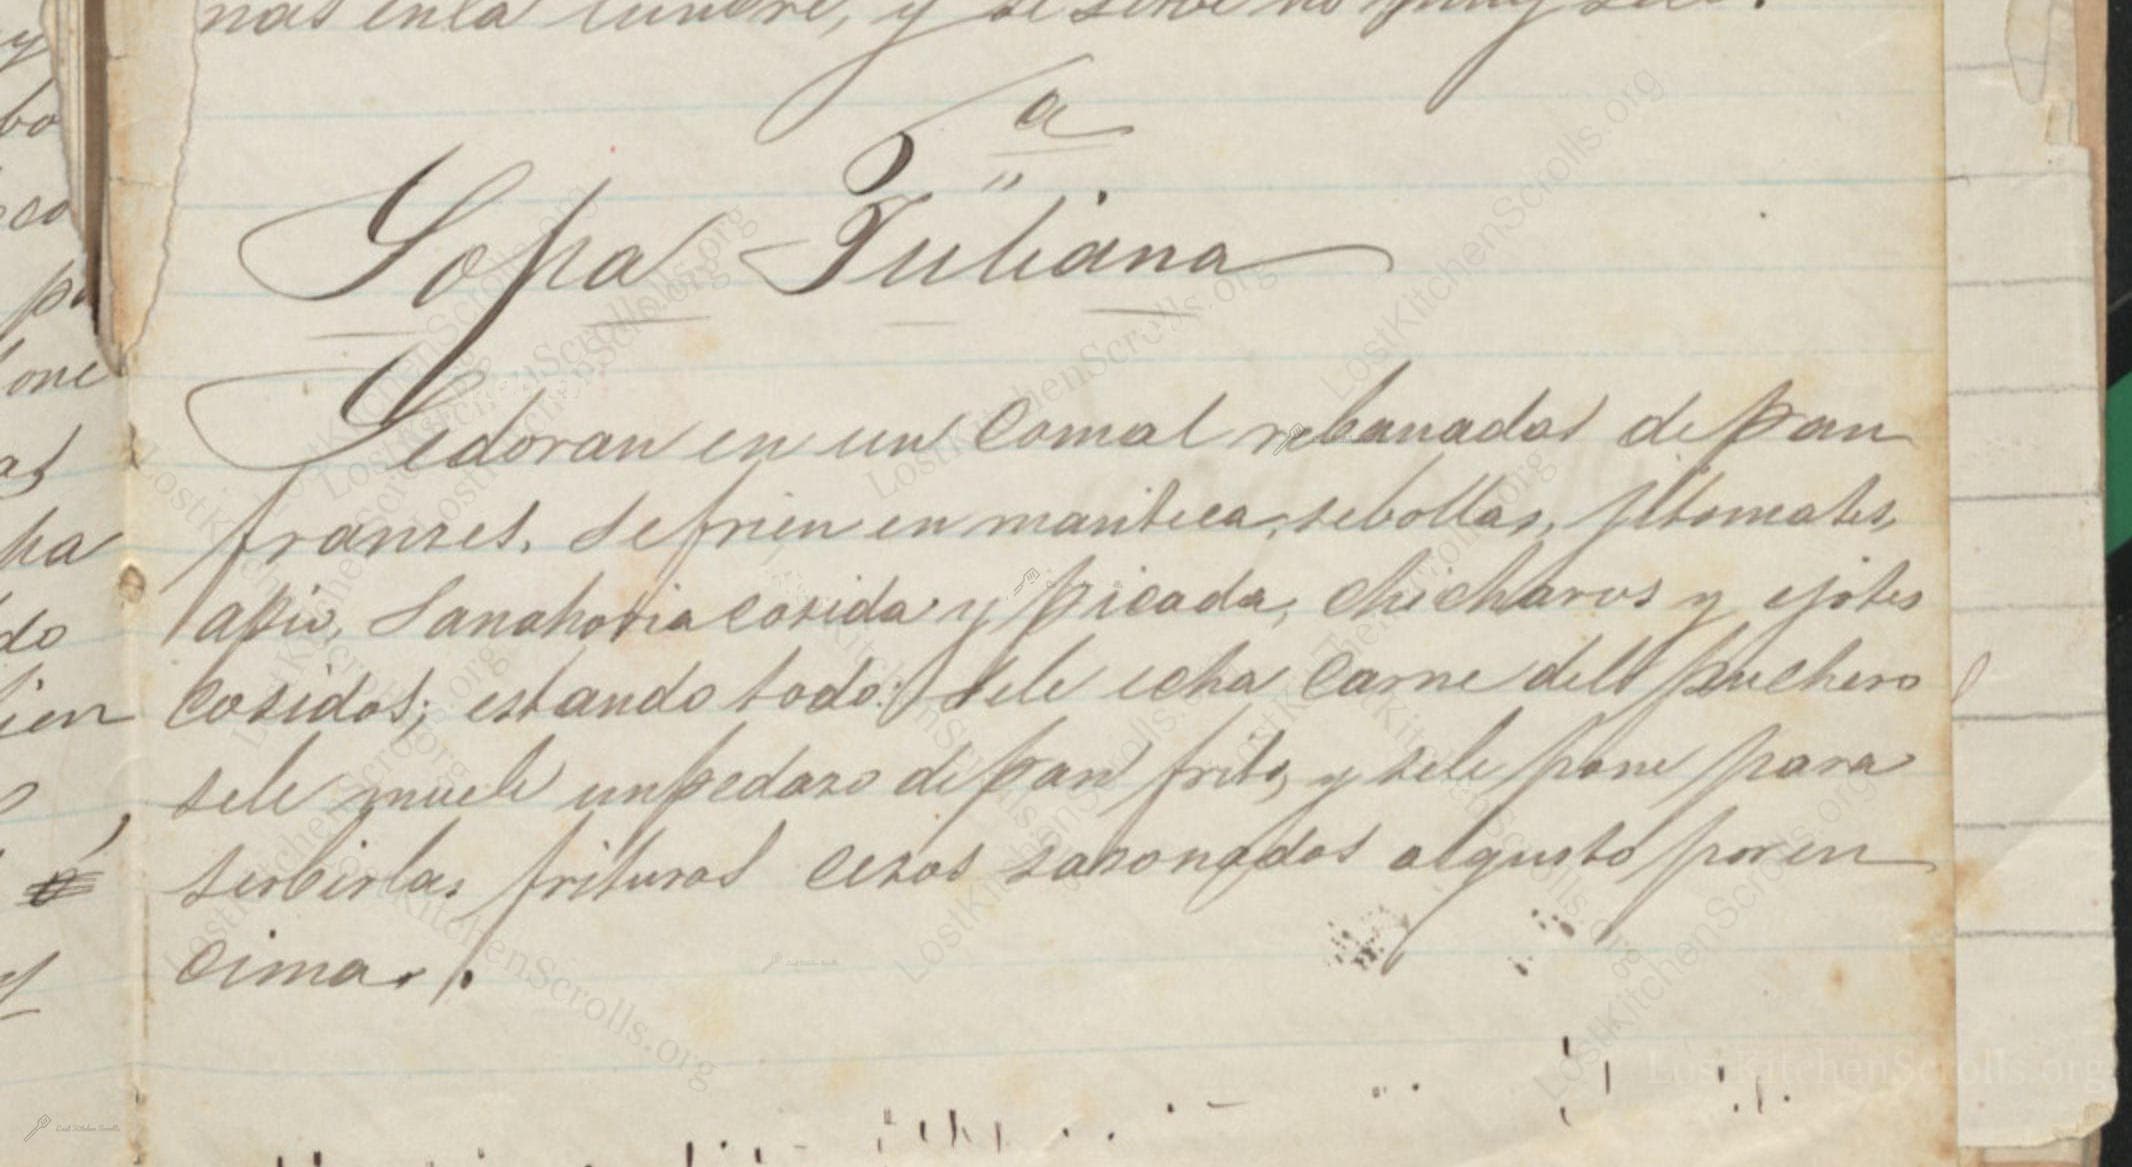 nas en la lumbre, y se sirbe no muy seca.
a
Sopa Juliana
Se doran en un comal rebanadas de pan
franses, se frien en manteca, sebollas, jitomates,
apio, sanahoria cosida y picada, chicharos y ejotes
cosidos; estando todo se le echa carne dell puchero
se le muele un pedaso de pan frito, y se le pone para
serbirlas frituras cesos sasonados al gusto por en
cima.
y
bo
co
pa
one
as
pa
do
ien
y
LostKitchenScrolls.org